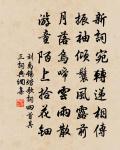 新詞宛轉遞相傳
振袖傾鬟風露前
月落烏啼雲雨散
遊童陌上拾花鈿
劉禹錫踏歌詞四首其
三詞典網集